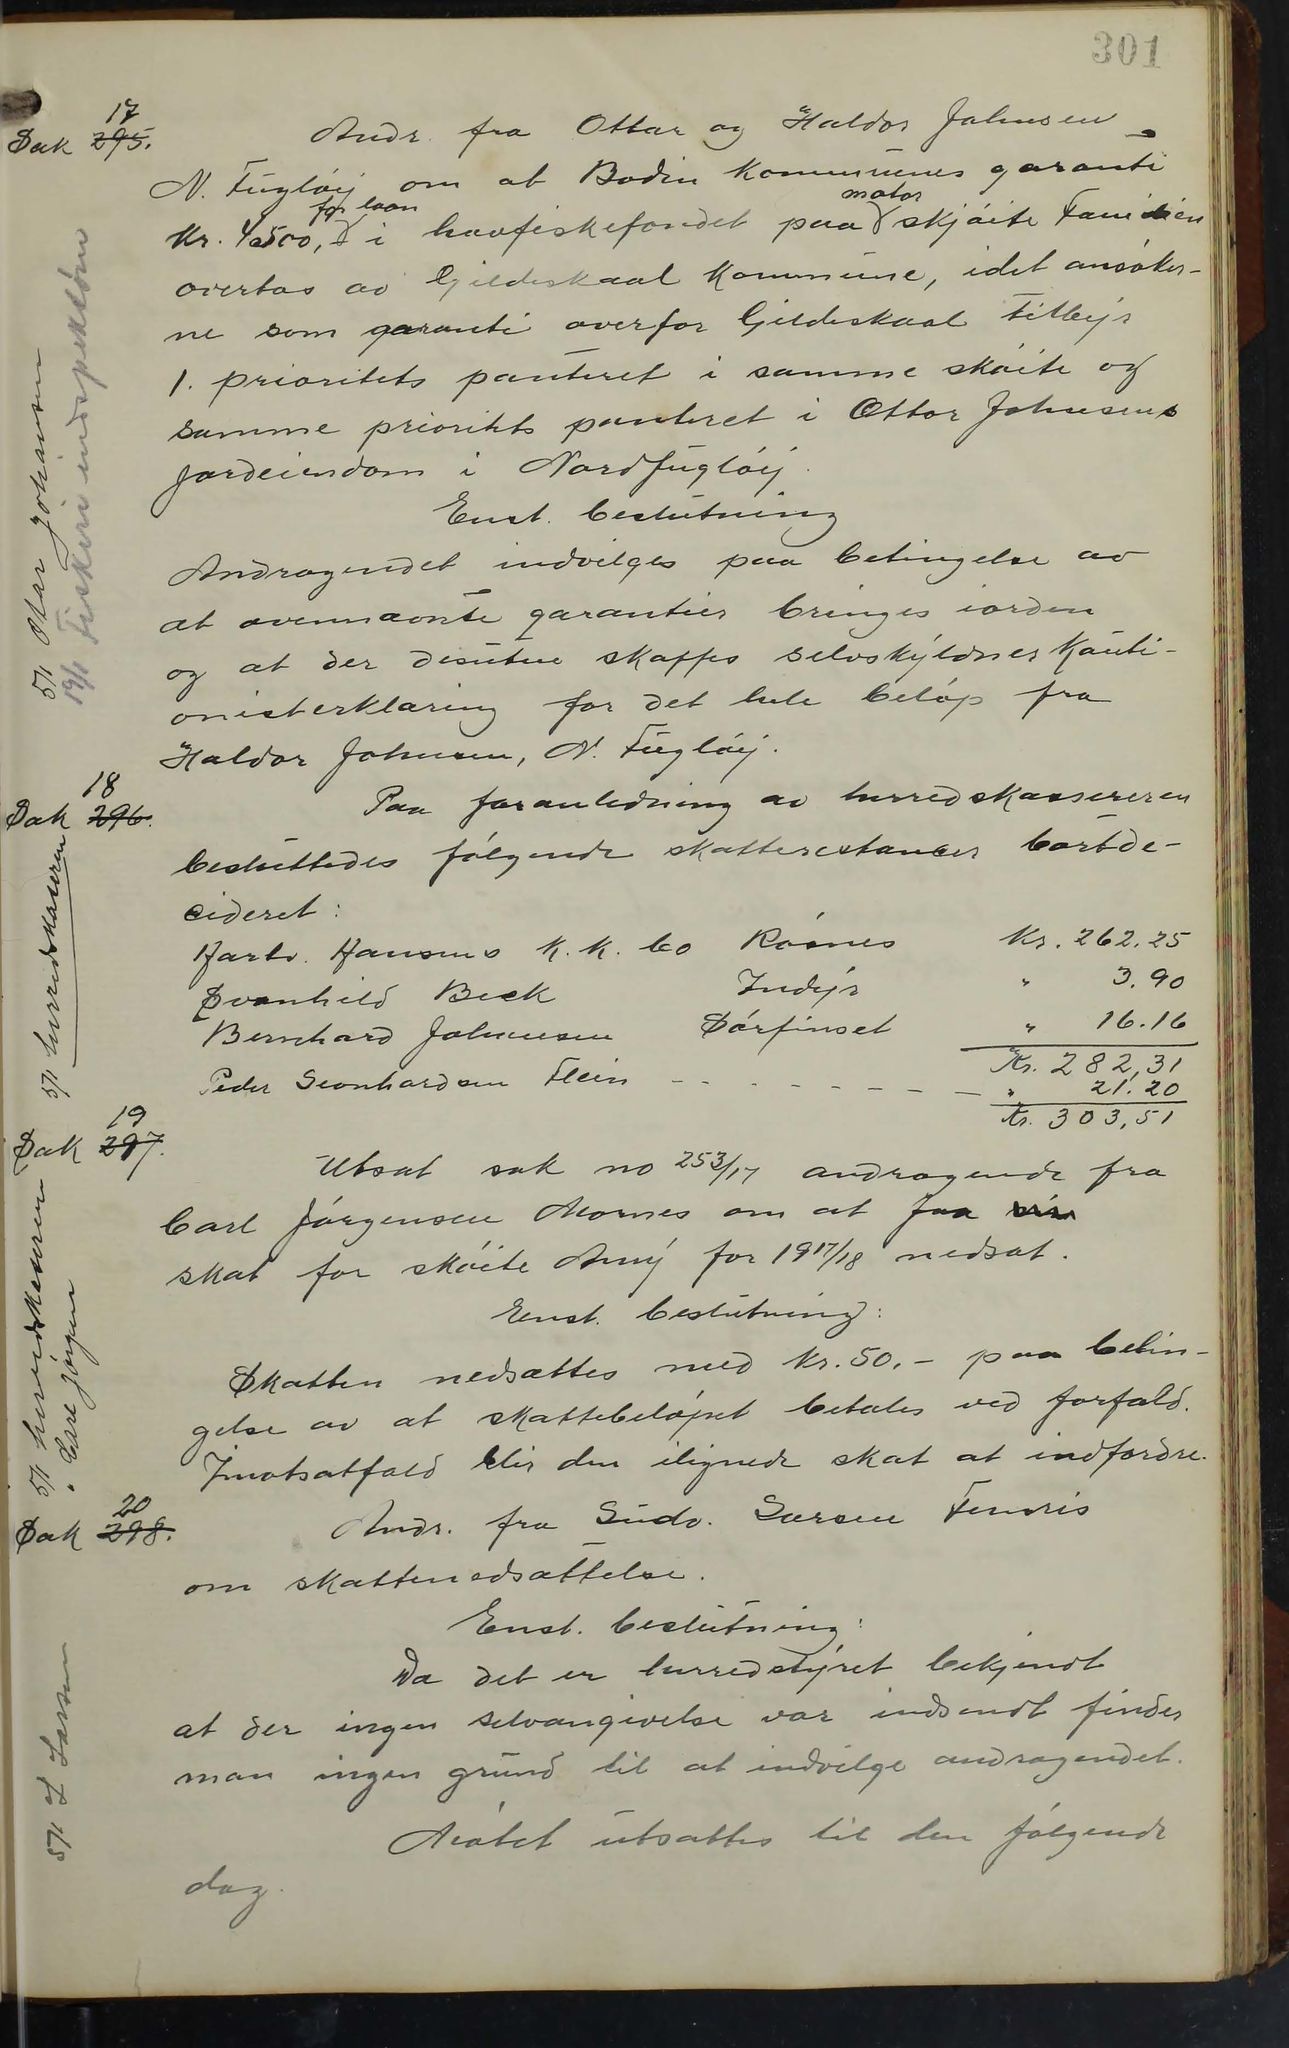 301
17
Sak 295.
Andr. fra Ottar og Haldor Johnsen
N. Fugløy om at Bodin kommunes garanti
for laan motor
Kr. 4500, i havfiskefondet paa skjøite Familien
overtas av Gildeskaal kommune, idet ansøker-
ne som garanti overfor Gildeskaal tilbyr
1. prioritets panteret i samme skøite og
samme prioritets panteret i Ottar Johnsens
jordeiendom i Nordfugløy.
Enst. beslutning
Andragendet indvilges paa betingelse av
at ovennævnte garantier bringes iorden
og at der desuten skaffes selvskyldner kauti-
onisterklæring for det hele beløp fra
Haldor Johnsen, N. Fugløy.
5/1 Otar Johansen
19/1 Fiskeriindspektøren
18
Sak 296.
Paa foranledning av herredskassereren
besluttedes følgende skatterestancer bortde-
cideret:
Hartv. Hansens K.K. Co Røsnes Kr. 262.25
Svanhild Beck Indyr " 3.90
Bernhard Johnsen Sørfinset " 16.16
Kr. 282,31
Peder Leonhardsen Flein - - - - - - - " 21.20
Kr. 303,51
5/1 herredskasseren
19
Sak 297.
Utsat sak no 253/17 andragende fra
Carl Jørgensen Mornes om at faa
skat for skøite Amy for 1917/18 nedsat.
Enst. beslutning:
Skatten nedsættes med kr. 50.- paa betin-
gelse av at skattebeløpet betales ved forfald.
Imotsatfald blir den ilignede skat at indfordre.
5/1 herredskasseren
" Carl Jørgensen
20
Sak 298.
Andr. fra Ludv. Larsen Fenris
om skattenedsættelse.
Enst. beslutning:
Da det er herredstyret bekjendt
at der ingen selvangivelse var indsendt findes
man ingen grund til at indvilge andragendet.
5/1 L Larsen
Møtet utsattes til den følgende
dag.